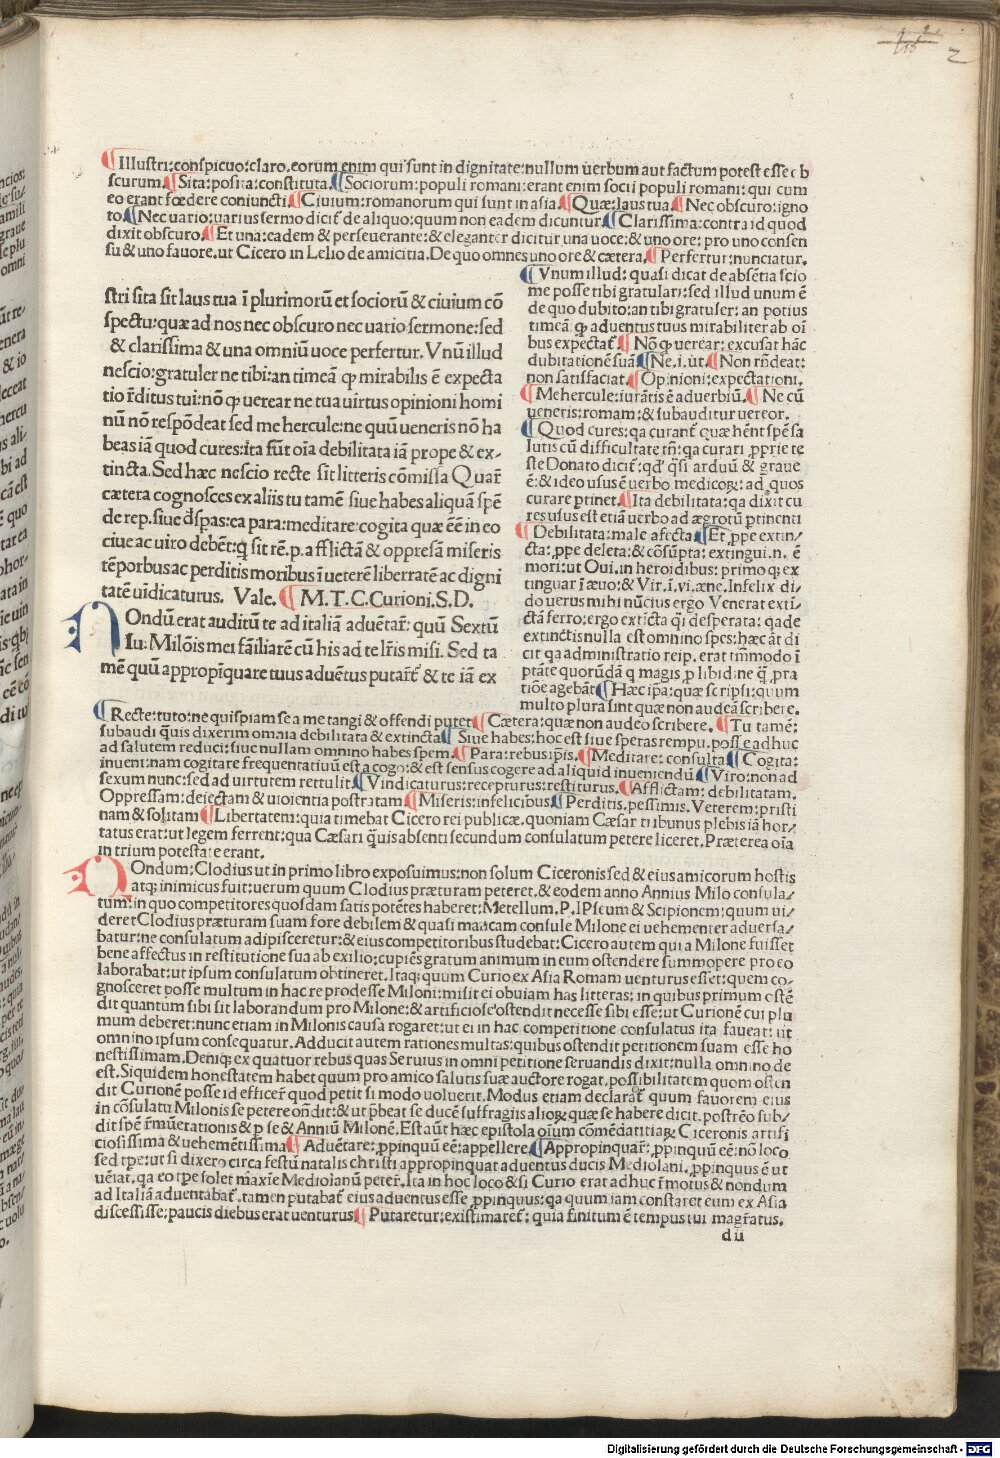 2
¶ Illustri:conspicuo:claro.eorum enim qui sunt in dignitate:nullum uerbum aut factum potest esse ob
scurum.¶ Sita:posita:constituta.¶ Sociorum:populi romani:erant enim socii populi romani: qui cum
eo erant fœdere coniuncti.¶ Ciuium:romanorum qui sunt in asia.¶ Quæ:laus tua.¶ Nec obscuro:igno
to.¶ Nec uario:uarius sermo dicit̃ de aliquo:quum non eadem dicuntur.¶ Clarissima:contra id quod
dixit obscuro.¶ Et una:eadem & perseuerante:& eleganter dicitur una uoce:& uno ore: pro uno consen
su & uno fauore.ut Cicero in Lelio de amicitia.De quo omnes uno ore & cætera.¶ Perfertur:nunciatur.
stri sita sit laus tua ĩ plurimorũ et sociorũ & ciuium cõ
spectu:quæ ad nos nec obscuro nec uario sermone:sed
& clarissima & una omniũ uoce perfertur. Vnũ illud
nescio:gratuler ne tibi:an timeã ꝙ mirabilis ẽ expecta
tio r̃ditus tui:nõ ꝙ uerear ne tua uirtus opinioni homi
nũ nõ respõdeat sed me hercule:ne quũ ueneris nõ ha
beas iã quod cures:ita sũt oĩa debilitata iã prope & ex-
tincta.Sed hæc nescio recte sĩt litteris cõmissa Quar̃
cætera cognosces ex aliis tu tamẽ siue habes aliquã spẽ
de rep.siue d̃spas:ea para:meditare:cogita quæ ẽẽ in eo
ciue ac uiro debẽt:q̃ sit rẽ.p.afflictã & oppresã miseris
tẽporbus ac perditis moribus ĩ ueterẽ liberratẽ ac digni
tatẽ uĩdicaturus. Vale.¶ M.T.C.Curioni.S.D.
NOndũ erat auditũ te ad italiã aduẽtar̃: quũ Sextũ
Iu: Milõis mei fãiliarẽ cũ his ad te lr̃is misi. Sed ta
mẽ quũ appropĩquare tuus aduẽtus putaret̃ & te iã ex
¶ Vnum illud: quasi dicat de absẽtia scio
me posse tibi gratulari:sed illud unum ẽ
de quo dubito:an tibi gratuler: an potius
timeã ꝙ aduentus tuus mirabiliter ab oĩ
bus expectat̃.¶ Nõ ꝙ uerear: excusat hãc
dubitationẽ suã.¶ Ne.i.ut.¶ Non rñdeat:
non satisfaciat.¶ Opinioni:expectationi.
¶ Me hercule:iurãtis ẽ aduerbiũ.¶ Ne cũ
ueneris:romam:& subauditur uereor.
¶ Quod cures:qa curant̃ quæ hẽnt spẽ sa
lutis cũ difficultate tñ:qa curari ꝓprie te
ste Donato dicit̃:qd' q̃si arduũ & graue
ẽ:& ideo usus ẽ uerbo medicoꝝ: ad quos
curare ꝑtinet.¶ Ita debilitata:qa dixit cu
res usus est etiã uerbo ad ægrotũ ꝑtinenti
¶ Debilitata:male affecta.¶ Et ꝓpe extin/
cta:ꝓpe deleta:& cõsũpta:extingui.n. ẽ
mori:ut Oui.in heroidibus: primo q; ex
tinguar ĩ æuo:& Vir.i.vi.æne.Infelix di/
do uerus mihi nũcius ergo Venerat exti/
ctã ferro:ergo extĩcta q̃i desperata: qa de
extinctis nulla est omnino spes:hæc ãt di
cit qa administratio reip.erat tm̃modo ĩ
ptãte quorũdã q magis ꝓ libidĩe q̃ ꝓ ra
tiõe agebãt¶ Hæc ip̃a:quæ scripsi:quum
multo plura sint quæ non audeã scribere.
¶ Recte:tuto:ne quispiam se a me tangi & offendi putet.¶ Cætera:quæ non audeo scribere.¶ Tu tamẽ:
subaudi q̃uis dixerim omnia debilitata & extincta.¶ Siue habes:hoc est siue speras rempu.posse adhuc
ad salutem reduci:siue nullam omnino habes spem.¶ Para:rebus:ip̃is.¶ Meditare:consulta.¶ Cogita:
inueni:nam cogitare frequentatiuũ est a cogo:& est sensus cogere ad aliquid inueniendũ.¶ Viro:non ad
sexum nunc:sed ad uirtutem rettulit.¶ Vindicaturus:recepturus:restiturus.¶ Afflictam:debilitatam.
Oppressam:deiectam & uiolentia postratam.¶ Miseris:infelicibus.¶ Perditis.pessimis.Veterem:pristi
nam & solitam ¶ Libertatem:quia timebat Cicero rei publicæ.quoniam Cæsar tribunus plebis iã hor/
tatus erat:ut legem ferrent:qua Cæsari q̃uis absenti secundum consulatum petere liceret.Præterea oĩa
in trium potestate erant.
NOndum:Clodius ut in primo libro exposuimus:non solum Ciceronis sed & eius amicorum hostis
atq; inimicus fuit:uerum quum Clodius præturam peteret.& eodem anno Annius Milo consula/
tum:in quo competitores quosdam satis potẽtes haberet:Metellum.P.IPseum & Scipionem:quum ui/
deret Clodius præturam suam fore debilem & quasi mancam consule Milone ei uehementer aduersa/
batur:ne consulatum adipisceretur:& eius competitoribus studebat:Cicero autem qui a Milone fuisset
bene affectus in restitutione sua ab exilio:cupiẽs gratum animum in eum ostendere summopere pro eo
laborabat:ut ipsum consulatum obtineret.Itaq; quum Curio ex Asia Romam uenturus esset:quem co-
gnosceret posse multum in hac re prodesse Miloni:misit ei obuiam has litteras: in quibus primum ostẽ
dit quantum sibi sit laborandum pro Milone:& artificiose ostendit necesse sibi esse:ut Curionẽ cui plu
mum deberet:nunc etiam in Milonis causa rogaret:ut ei in hac competitione consulatus ita faueat: ut
omnino ipsum consequatur.Adducit autem rationes multas:quibus ostendit petitionem suam esse ho
nestissimam.Deniq; ex quatuor rebus quas Seruius in omni petitione seruandis dixit:nulla omnino de
est.Siquidem honestatem habet quum pro amico salutis suæ auctore rogat.possibilitatem quom osten
dit Curionẽ posse id efficer̃ quod petit si modo uoluerit.Modus etiam declarat̃ quum fauorem eius
in cõsulatu Milonis se petere oñdit:& ut p̃beat se ducẽ suffragiis alioꝝ quæ se habere dicit.postrẽo sub/
dit spẽ r̃mũerationis & ꝑ se & Anniũ Milonẽ.Est aũt hæc epistola oĩum cõmẽdatitiaꝝ Ciceronis artifi
ciosissima & uehemẽtissima¶ Aduẽtare:ꝓpinquũ ẽe:appellere.¶ Appropinquar̃: ꝓpinquũ ẽe: nõ loco
sed tꝑe:ut si dixero circa festũ natalis christi appropinquat aduentus ducis Mediolani.ꝓpinquus ẽ ut
uẽiat.qa eo tꝑe solet maxĩe Mediolanũ peter̃.Ita in hoc loco & si Curio erat adhuc r̃motus & nondum
ad Italiã aduentabat̃.tamen putabat̃ eius aduentus esse ꝓpinquus:qa quum iam constaret eum ex Asia
discessisse:paucis diebus erat uenturus¶ Putaretur:existimaret̃: quia finitum ẽ tempus tui magr̃atus.
dũ
Digitalisierung gefördert durch die Deutsche Forschungsgemeinschaft - DFG